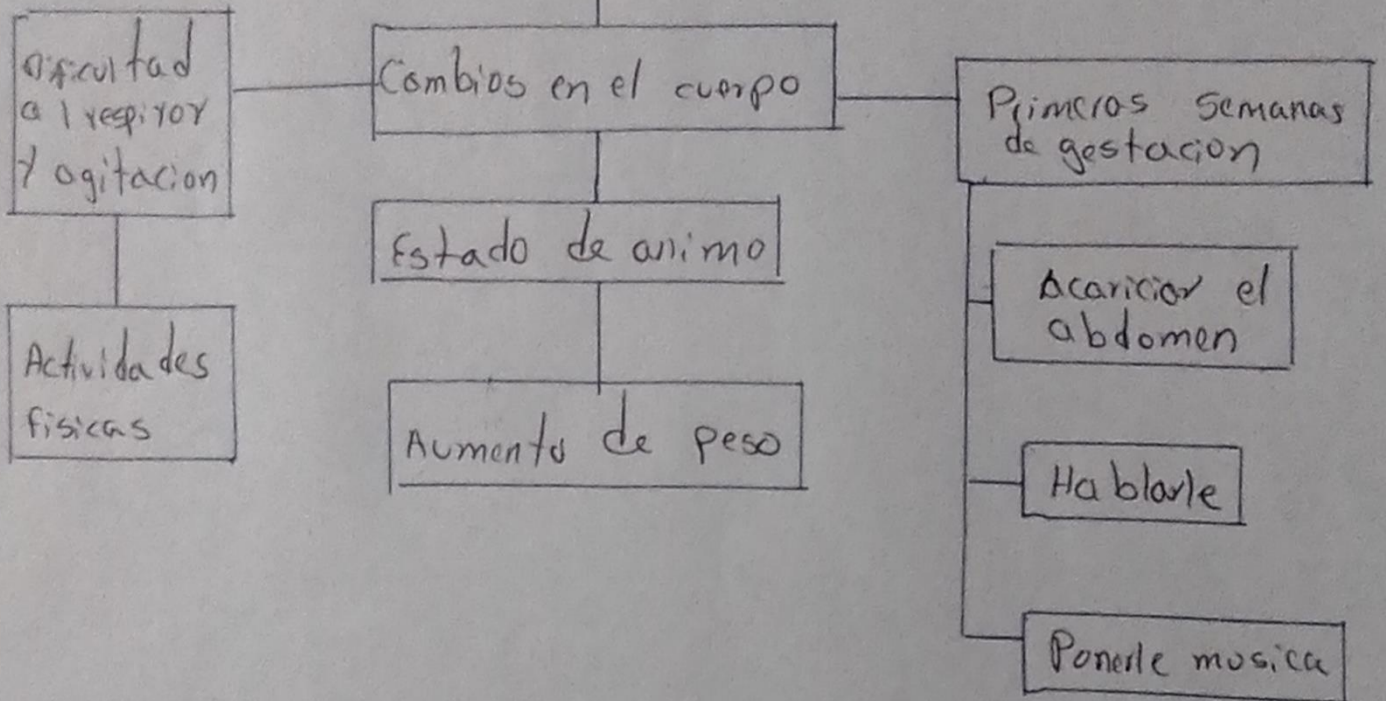 Dificultad
al respirar
y agitacion
Actividades
fisicas
Cambios en el cuerpo
Estado de animo
Aumento de peso
Primeras semanas
de gestacion
Acariciar el
abdomen
Hablarle
Ponerle musica